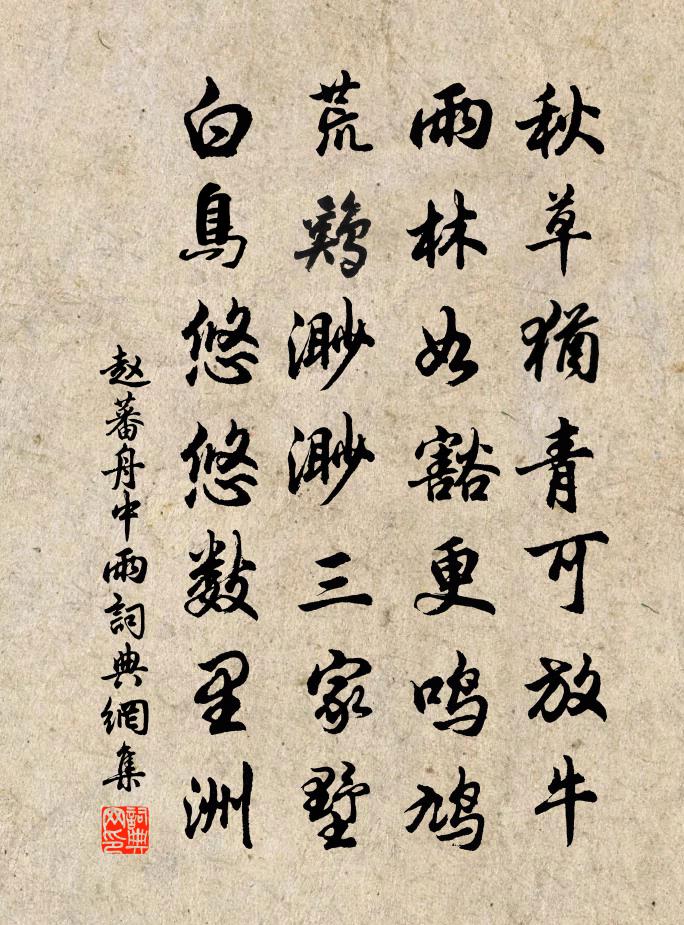 秋草猶青可放牛
雨林如豁更鸣鸠
荒鷄渺渺三家墅
白鳥悠悠数里洲
赵蕃舟中雨詞典網集
詞典网印